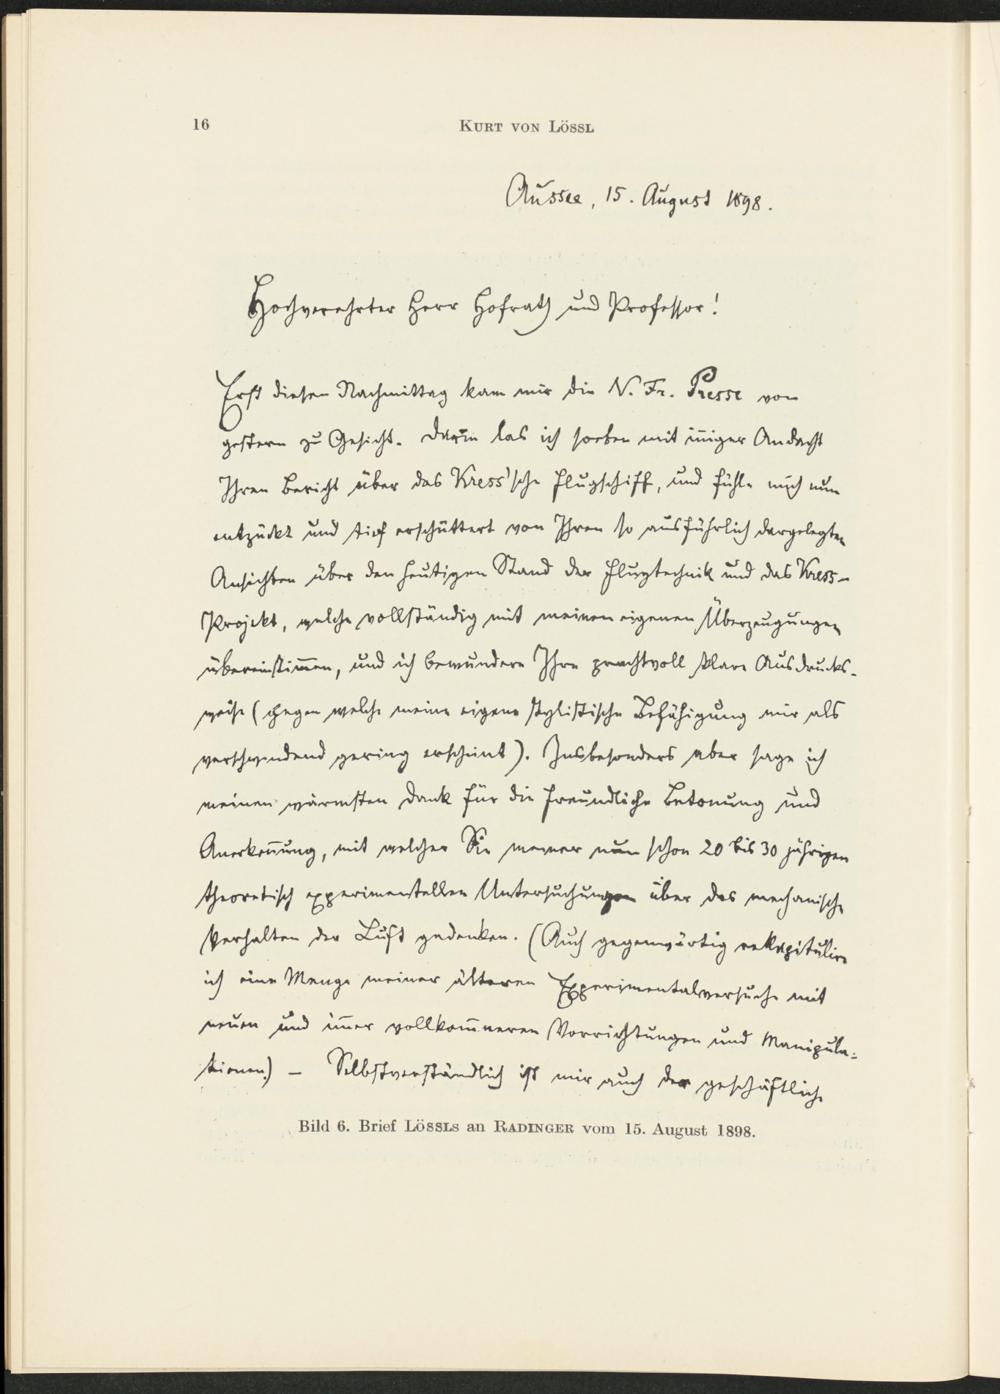 16
KURT VON LÖSSL
Aussee, 15. August 1898.
Hochverehrter Herr Hofrath und Professor!
Erst diesen Nachmittag kam mir die N. Fr. Presse von
gestern zu Gesicht. Darin las ich soeben mit iñiger Andacht
Ihren Bericht über das Kress'sche Flugschiff, und fühle mich nun
entzückt und tief erschüttert von Ihren so ausführlich dargelegten
Ansichten über den heutigen Stand der Flugtechnik und das Kress-
Projekt, welche vollständig mit meinen eigenen Überzeugungen
übereinstim̄en, und ich bewundere Ihre prachtvoll klare Ausdrucks-
weise (gegen welche meine eigene stylistische Befähigung mir als
verschwindend gering erscheint). Insbesonders aber sage ich
meinen wärmsten Dank für die freundliche Betonung und
Anerkeñung, mit welcher Sie meiner nun schon 20 bis 30 jährigen
theoretisch experimentellen Untersuchungen über das mechanische
Verhalten der Luft gedenken. (Auch gegenwärtig rekapitulire
ich eine Menge meiner älteren Experimentalversuche mit
neuen und im̄er vollkom̄neren Vorrichtungen und Manipula-
tionen) – Selbstverständlich ist mir auch der geschäftliche
Bild 6. Brief LÖSSLS an RADINGER vom 15. August 1898.